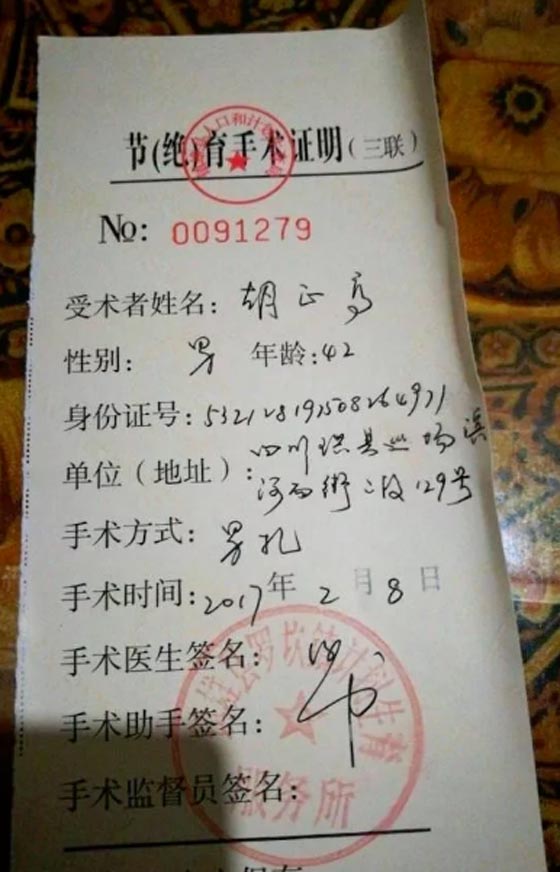 节(绝)育手术证明(三联)
No: 0091279
受术者姓名: 胡正高
性别: 男 年龄:42
身份证号:
单位(地址): 四川珙县巡场滨
河西街二段129号
手术方式: 男扎
手术时间: 2017年2月8日
手术医生签名:
手术助手签名:
手术监督员签名:
罗坎镇计划生育
服务所